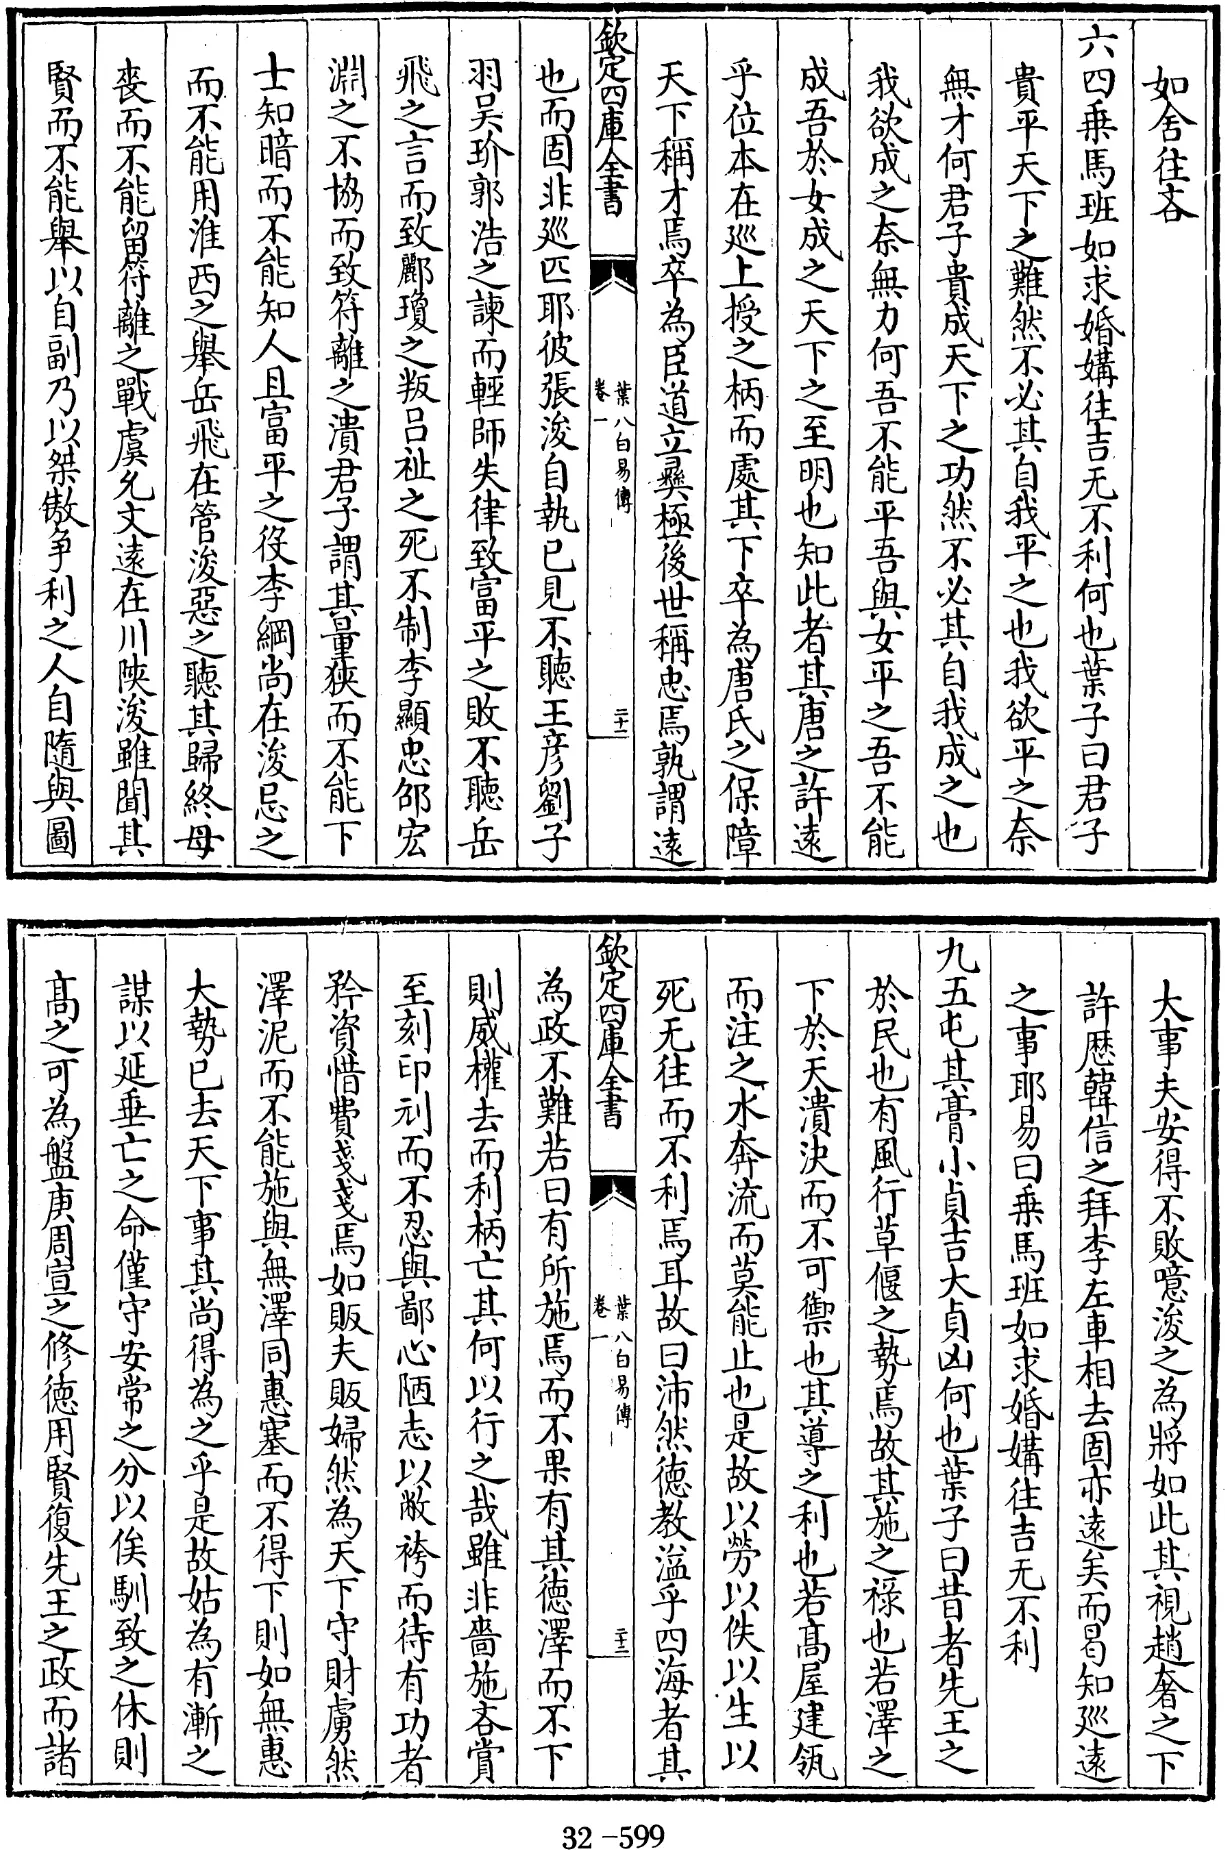 如舍往吝
六四乗馬班如求婚媾往吉无不利何也葉子曰君子
貴平天下之難然不必其自我平之也我欲平之奈
無才何君子貴成天下之功然不必其自我成之也
我欲成之奈無力何吾不能平吾與女平之吾不能
成吾於女成之天下之至明也知此者其唐之許遠
乎位本在廵上授之柄而處其下卒為唐氏之保障
天下稱才焉卒為臣道立彞極後世稱忠焉孰謂遠
欽定四庫全書
葉八白易傳
卷一
二十二
也而固非廵匹耶彼張浚自執已見不聽王彦劉子
羽吴玠郭浩之諫而輕師失律致富平之敗不聽岳
飛之言而致酈瓊之叛吕祉之死不制李顯忠邵宏
淵之不協而致符離之潰君子謂其量狹而不能下
士知暗而不能知人且富平之役李綱尚在浚忌之
而不能用淮西之舉岳飛在管浚惡之聽其歸終母
喪而不能留符離之戰虞允文遠在川陜浚雖聞其
賢而不能舉以自副乃以桀傲争利之人自隨與圖
大事夫安得不敗噫浚之為將如此其視趙奢之下
許歴韓信之拜李左車相去固亦遠矣而曷知廵遠
之事耶易曰乗馬班如求婚媾往吉无不利
九五屯其膏小貞吉大貞凶何也葉子曰昔者先王之
於民也有風行草偃之勢焉故其施之祿也若澤之
下於天潰決而不可禦也其導之利也若髙屋建瓴
而注之水奔流而莫能止也是故以勞以佚以生以
死无往而不利焉耳故曰沛然德教溢乎四海者其
欽定四庫全書
葉八白易傳
卷一
二十三
為政不難若曰有所施焉而不果有其德澤而不下
則威權去而利柄亡其何以行之哉雖非嗇施吝賞
至刻印刓而不忍與鄙心陋志以敝袴而待有功者
矜資惜費戔戔焉如販夫販婦然為天下守財虜然
澤泥而不能施與無澤同惠塞而不得下則如無惠
大勢已去天下事其尚得為之乎是故姑為有漸之
謀以延垂亡之命僅守安常之分以俟馴致之休則
髙之可為盤庚周宣之修德用賢復先王之政而諸
32-599